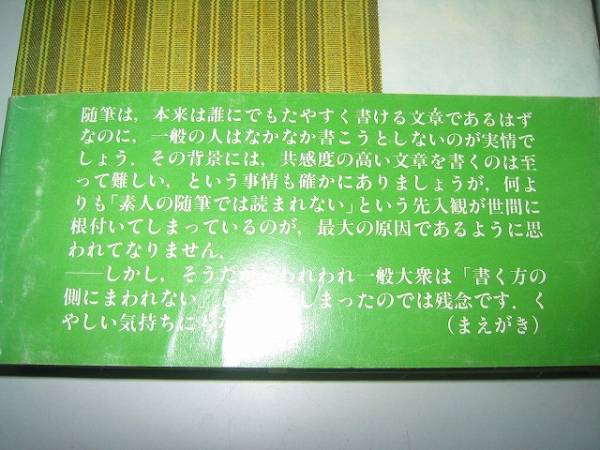 随筆は，本来は誰にでもたやすく書ける文章であるはず
なのに，一般の人はなかなか書こうとしないのが実情で
しょう．その背景には，共感度の高い文章を書くのは至
って難しい，という事情も確かにありましょうが，何よ
りも「素人の随筆では読まれない」という先入観が世間に
根付いてしまっているのが，最大の原因であるように思
われてなりません．
――しかし，そうだが われわれ一般大衆は「書く方の
側にまわれない しまったのでは残念です．く
やしい気持ちに
（まえがき）